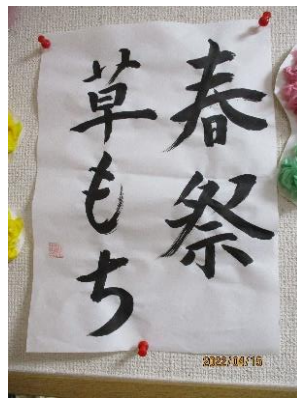 春祭
草もち
2022/04/15